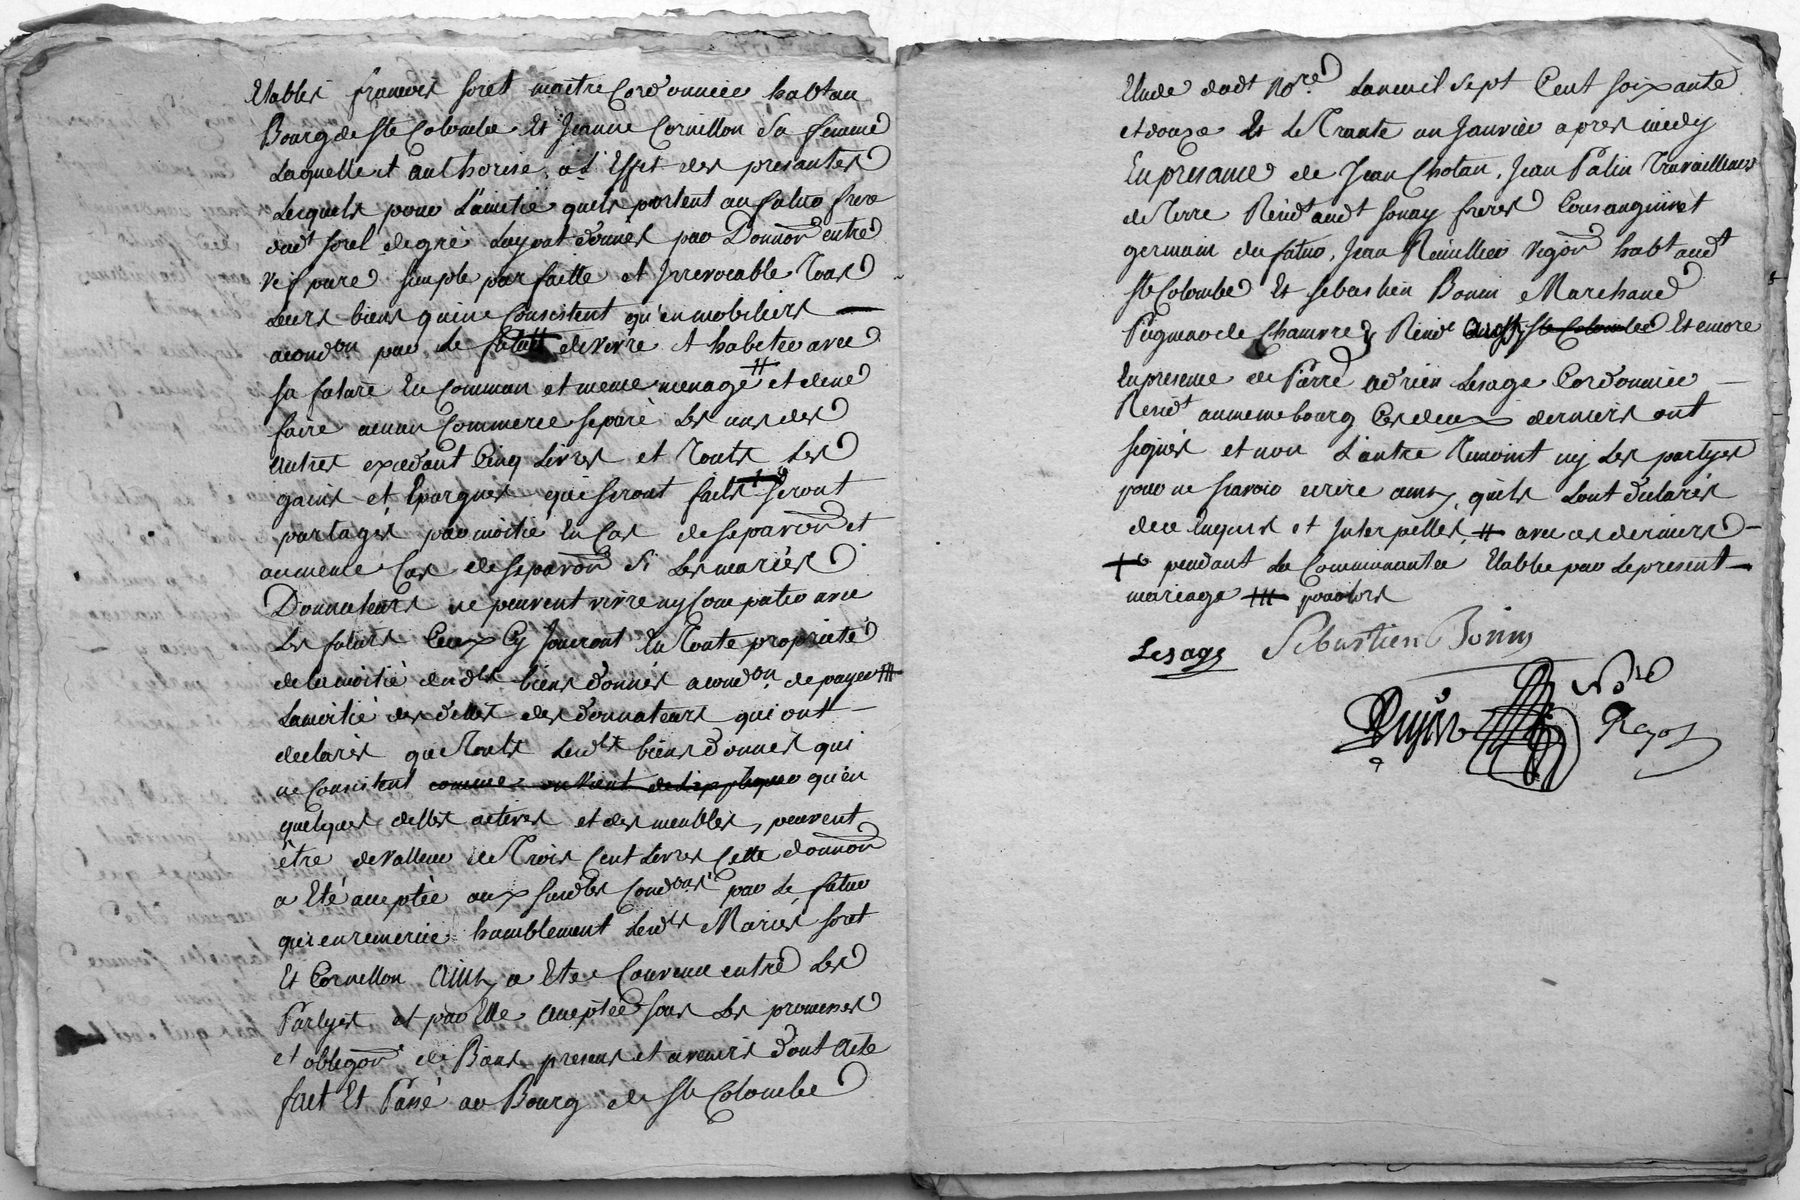 Etablis francois soret maitre Cordonnier habt au
Bourg de Ste Colombe Et Jeanne Cornillon Sa femme
Laquelle it authorise a L'Effet des presantes
Lesquels pour L'amitié quils portent au futur frere
dudt soret degré Luy ont donnés par Donnaon entre
vif pure simple parfaitte et Irrevocable Tous
Leurs biens qui ne Consistent qu'en mobiliers —
acondon par le futur de vivre et habiter avec
sa future En Commun et meme menage # et de ne
faire aucun Commerce separé Les uns des
autres excedant Cinq Livres et Touts Les
gains et Epargnes qui seront faits +o seront
partagés par moitié En Cas de separaon et
aumeme Cas de separaon Si Les mariés
Donnateurs ne peuvent vivre ny Compatir avec
Les futurs Ceux Cy Jouiront En Toute proprieté
de la moitié desdts biens donnés acondon de payer ##
La moitié des dettes des donnateurs qui ont —
declarés que Touts Lesdts biens donnés qui
ne Consistent comme on vient de L'expliquer qu'en
quelques dettes actives et des meubles, peuvent
être de valleur de Trois Cent Livres Cette donnaon
a Eté acceptée aux susdtes Condons par Le futur
qui en remercie humblement Lesdts Mariés soret
Et Cornillon Ainsy a Eté Convenu entre Les
Partyes et par Elle acceptée sous Les promesses
et obligaons de Biens presens et avenirs dont Acte
fait Et Passé au Bourg de Ste Colombe
Etude dudt Nore Lan mil Sept Cent soixante
et douze Et Le Trante un Janvier apres midy
En presance de Jean Chotan, Jean Palin Travailleurs
de Terre Residt audt sonay freres Consanguin et
germain du futur, Jean Vigon habt audt
Ste Colombe Et sebastien Bonin Marchand
de Chanvre Residt audt Ste Colombe Et encore
En presence de Pierre adrien Lesage Cordonnier —
Residt aumeme bourg Ces deux derniers ont
signés et non L'autre Temoint ny Les partyes
pour ne scavoir ecrire ainsy quils Lont declarés
de ce Enquis et Interpellés, # avec ces derniers —
+o pendant La Communautée Etablie par Le present —
mariage ## pour lors
Lesage Sebastien Bonin
Nore